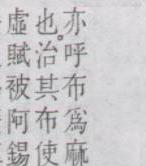 亦呼布爲麻
也。治其布使
虛賦被阿錫